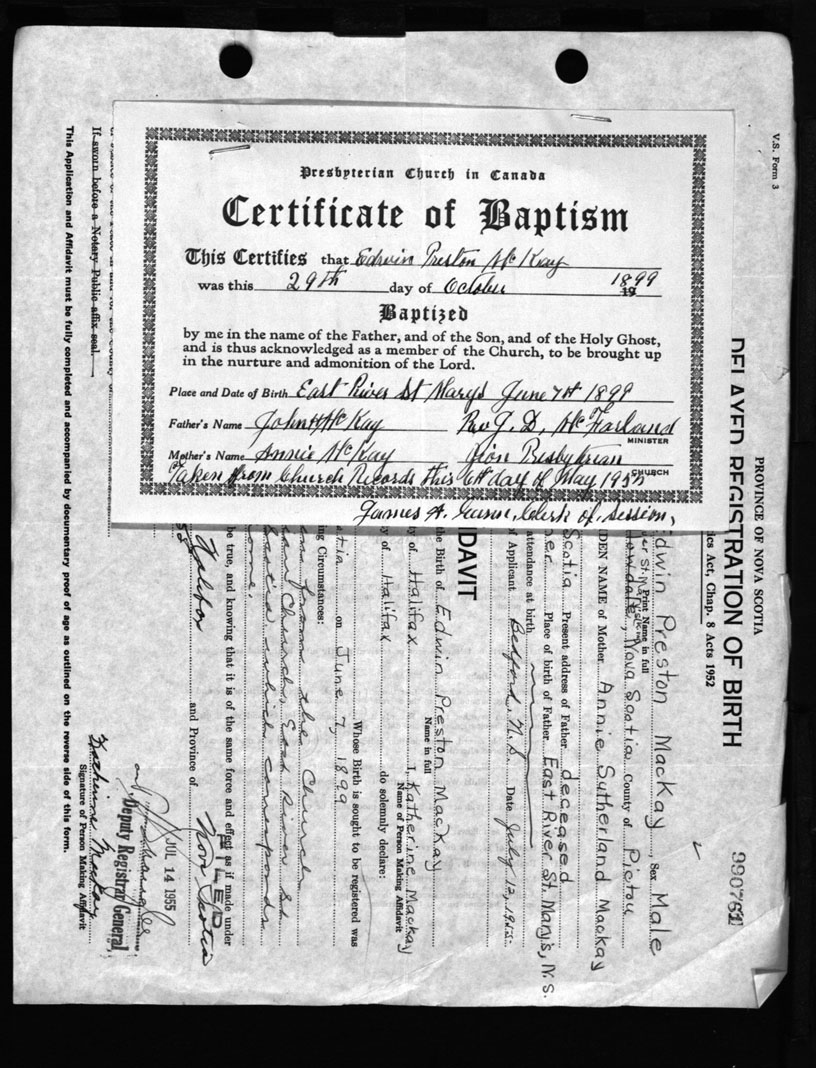 Presbyterian Church in Canada
Certificate of Baptism
This Certifies that Edwin Preston McKay
was this 29th day of October 1899
Baptized
by me in the name of the Father, and of the Son, and of the Holy Ghost,
and is thus acknowledged as a member of the Church, to be brought up
in the nurture and admonition of the Lord.
Place and Date of Birth East River St Marys June 7th 1899
Father's Name John H McKay Rev J. D. McFarland
MINISTER
Mother's Name Annie McKay Zion Presbyterian
CHURCH
Taken from Church Records this 6th day of May 1955
James A. Gunn, Clerk of Session,
V.S. Form 3
PROVINCE OF NOVA SCOTIA
DELAYED REGISTRATION OF BIRTH
Act, Chap. 8 Acts 1952
990761
dwin Preston MacKay, Sex Male
Print Name in full
Nova Scotia County of Pictou
DEN NAME of Mother Annie Sutherland Mackay
Scotia Present address of Father deceased
Place of birth of Father East River St. Mary's, N.S.
attendance at birth
of Applicant Bedford, N.S. Date July 12, 1955
DAVIT
the Birth of Edwin Preston MacKay
Name in full
of Halifax I, Katherine Mackay
Name of Person Making Affidavit
y of Halifax do solemnly declare:
Whose Birth is sought to be registered was
on June 7, 1899
ng Circumstances:
from the Church
Church, East River St.
Scotia, which corresponds
be true, and knowing that it is of the same force and effect as if made under
Halifax and Province of Nova Scotia
FILED
JUL 14 1955
Deputy Registrar General
Katherine Mackay
Signature of Person Making Affidavit
If sworn before a Notary Public affix seal.
This Application and Affidavit must be fully completed and accompanied by documentary proof of age as outlined on the reverse side of this form.